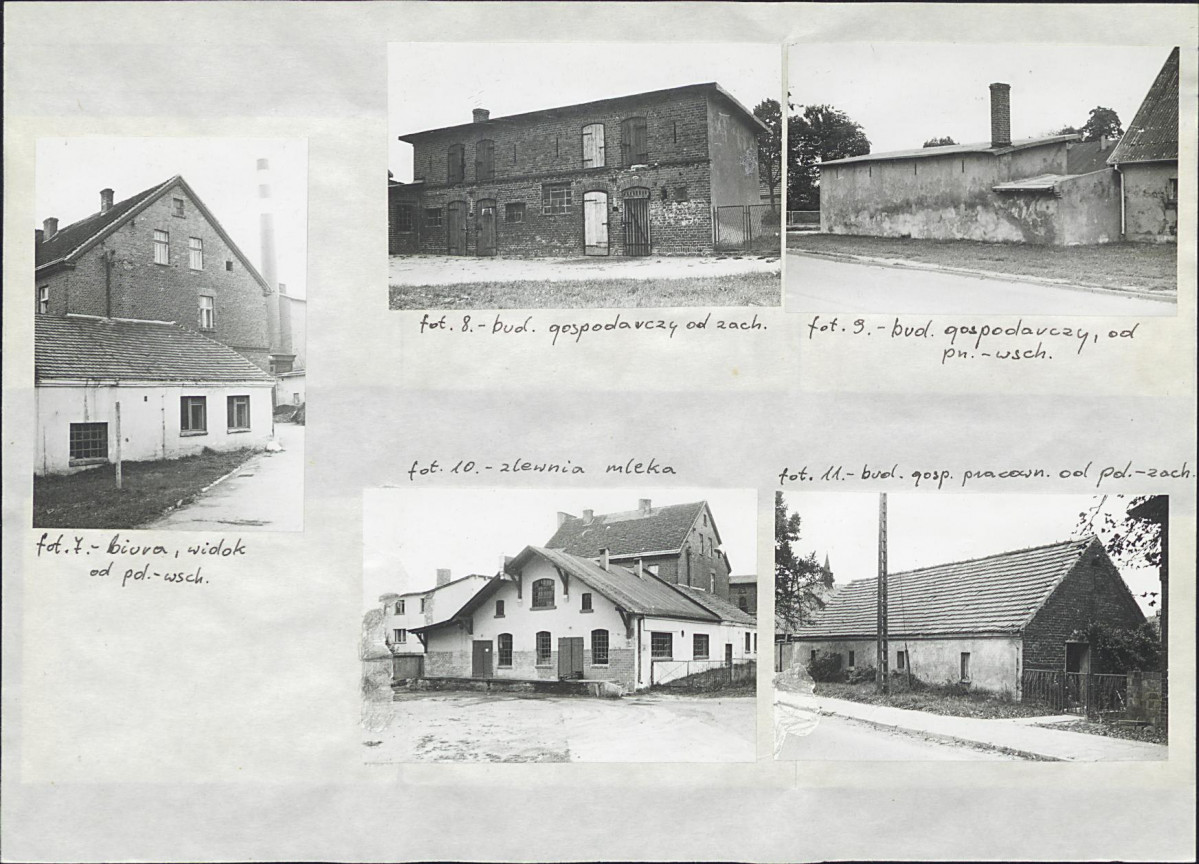 fot. 8.- bud. gospodarczy od zach.
fot. 9.- bud. gospodarczy, od
pn.-wsch.
fot. 7.- biura, widok
od pd.-wsch.
fot. 10.- zlewnia mleka
fot. 11.- bud. gosp. pracown. od pd.-zach.